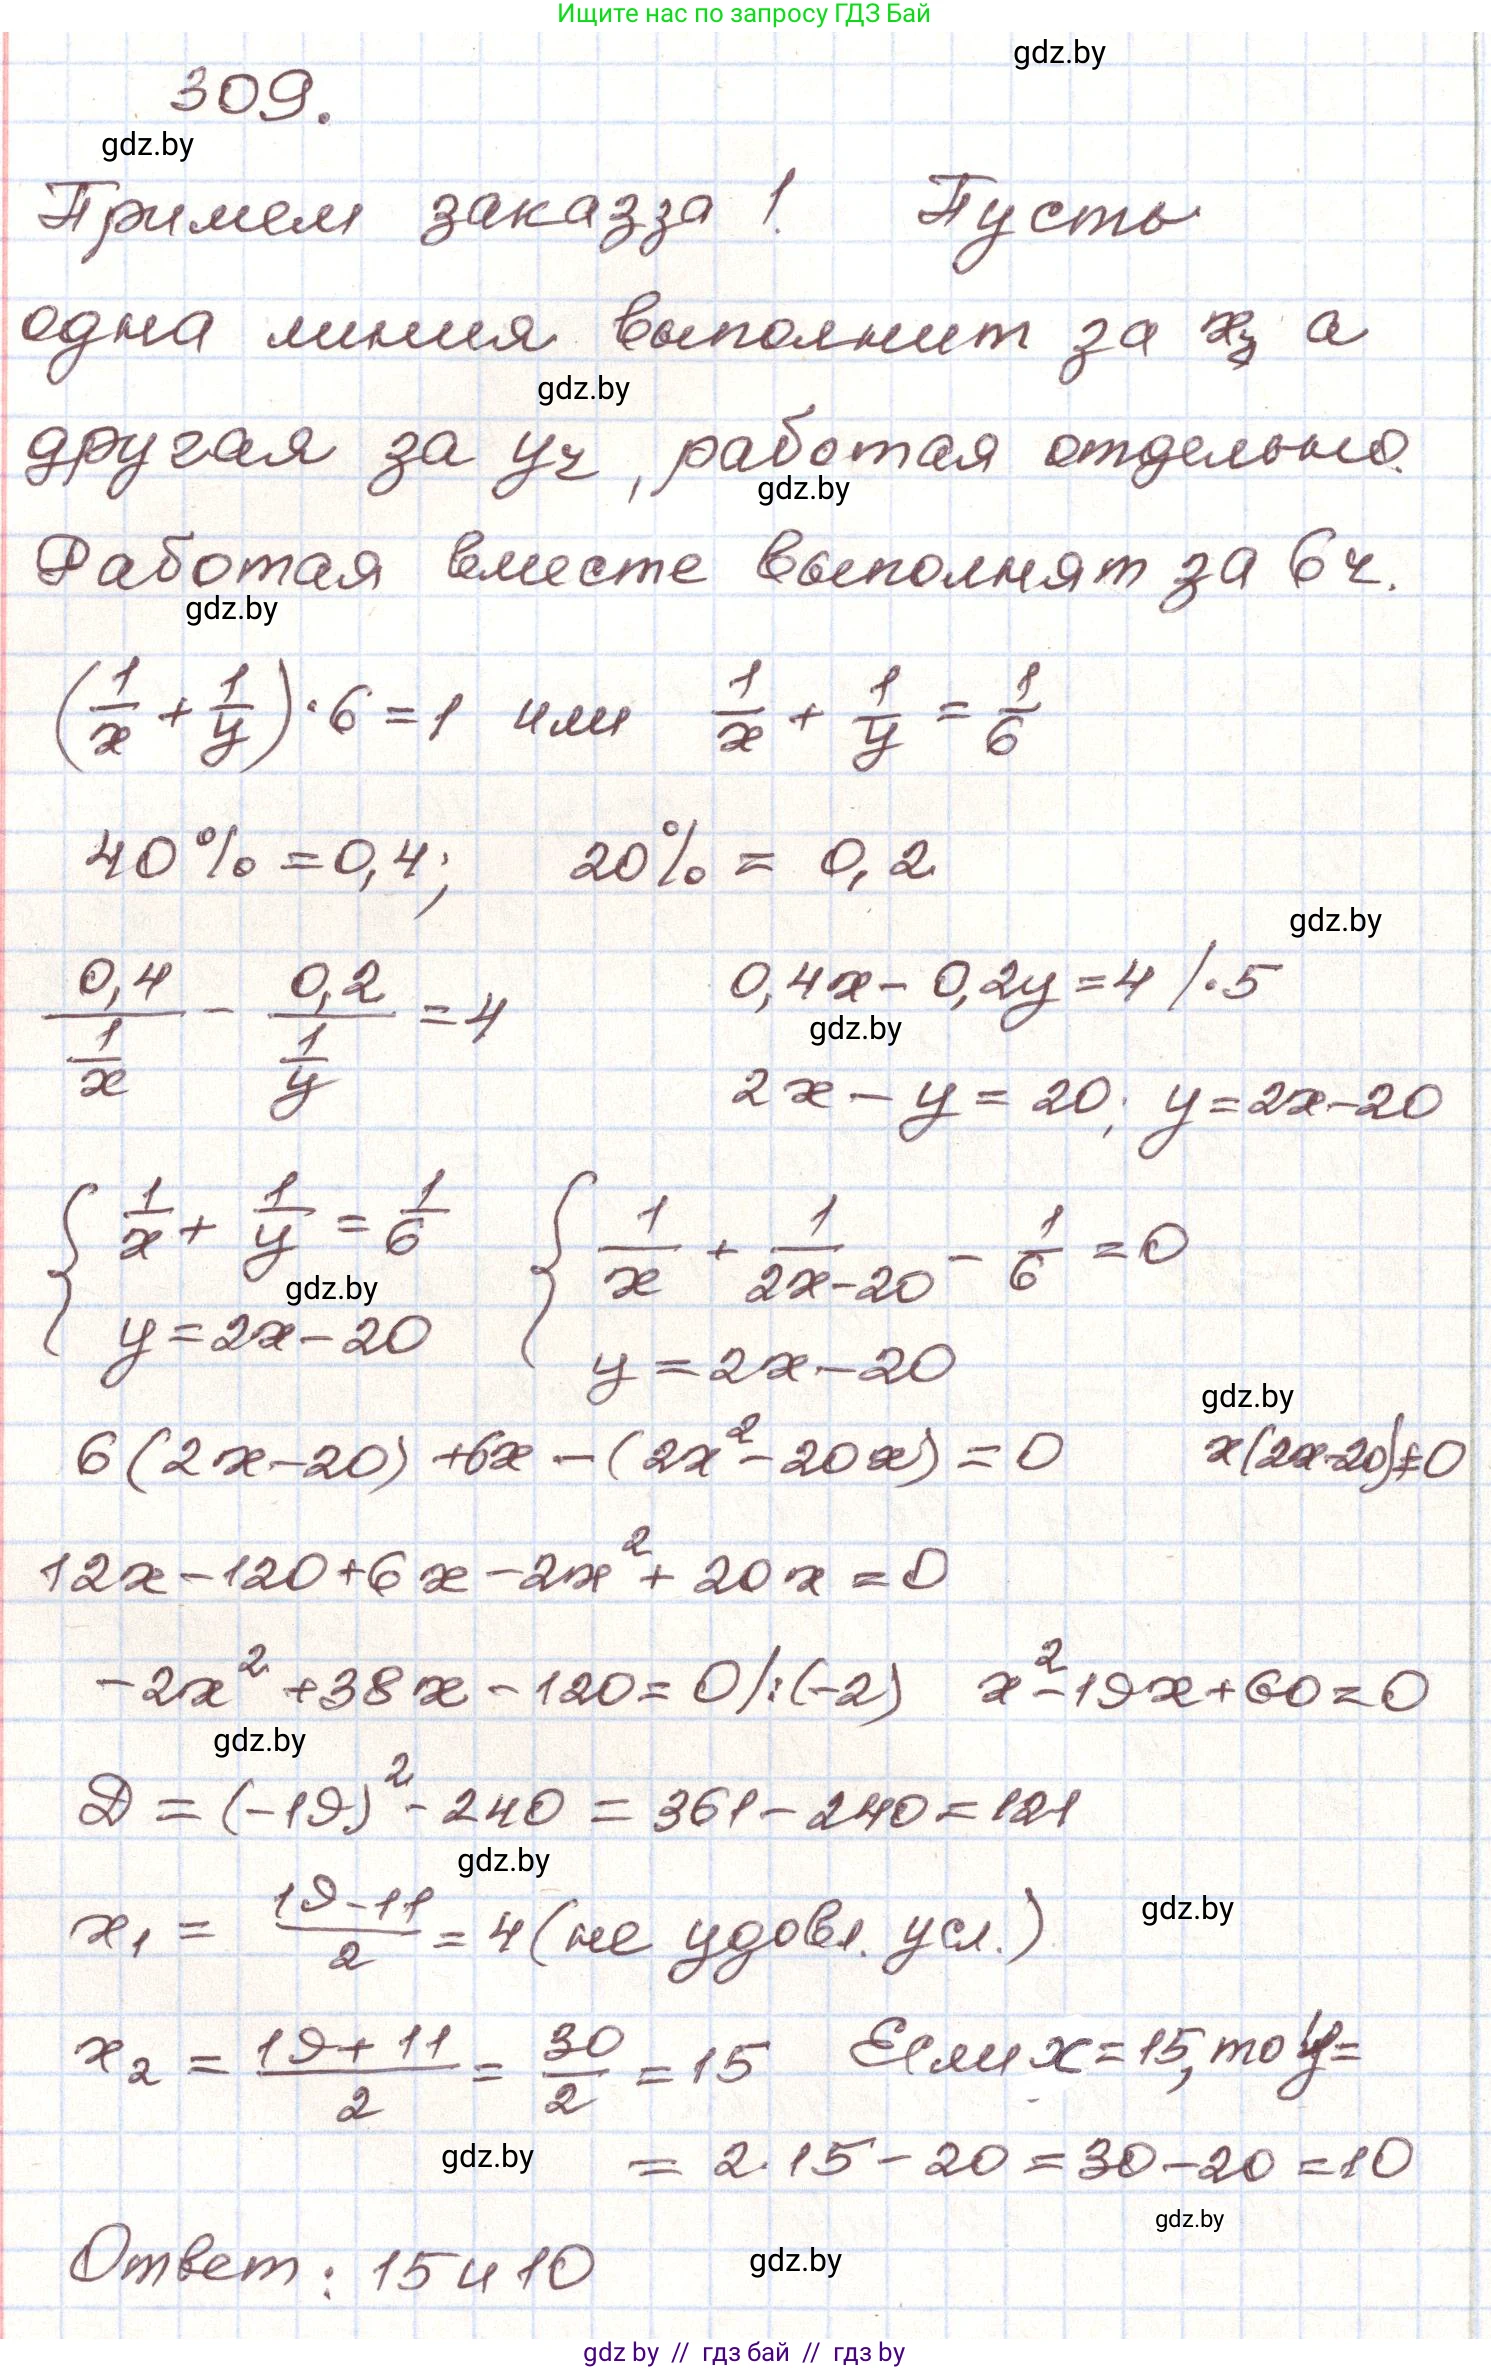 Ищите нас по запросу ГДЗ Бай
gdz.by
309.
gdz.by
Примем заказ за 1. Пусть
одна линия выполнит за x, а
gdz.by
другая за y ч, работая отдельно.
gdz.by
Работая вместе выполнят за 6 ч.
gdz.by
(1/x + 1/y) · 6 = 1 или 1/x + 1/y = 1/6
40% = 0,4; 20% = 0,2
gdz.by
0,4/(1/x) - 0,2/(1/y) = 4 0,4x - 0,2y = 4 /·5
gdz.by
2x - y = 20; y = 2x - 20
{ 1/x + 1/y = 1/6 { 1/x + 1/(2x-20) - 1/6 = 0
gdz.by
y = 2x - 20 y = 2x - 20
gdz.by
6(2x-20) + 6x - (2x² - 20x) = 0 x(2x-20) ≠ 0
12x - 120 + 6x - 2x² + 20x = 0
-2x² + 38x - 120 = 0 /:(-2) x² - 19x + 60 = 0
gdz.by
D = (-19)² - 240 = 361 - 240 = 121
gdz.by
gdz.by
x₁ = (19-11)/2 = 4 (не удовл. усл.)
x₂ = (19+11)/2 = 30/2 = 15 Если x = 15, то y =
gdz.by
= 2·15 - 20 = 30 - 20 = 10
gdz.by
Ответ: 15 и 10
gdz.by
gdz by // гдз бай // гдз by